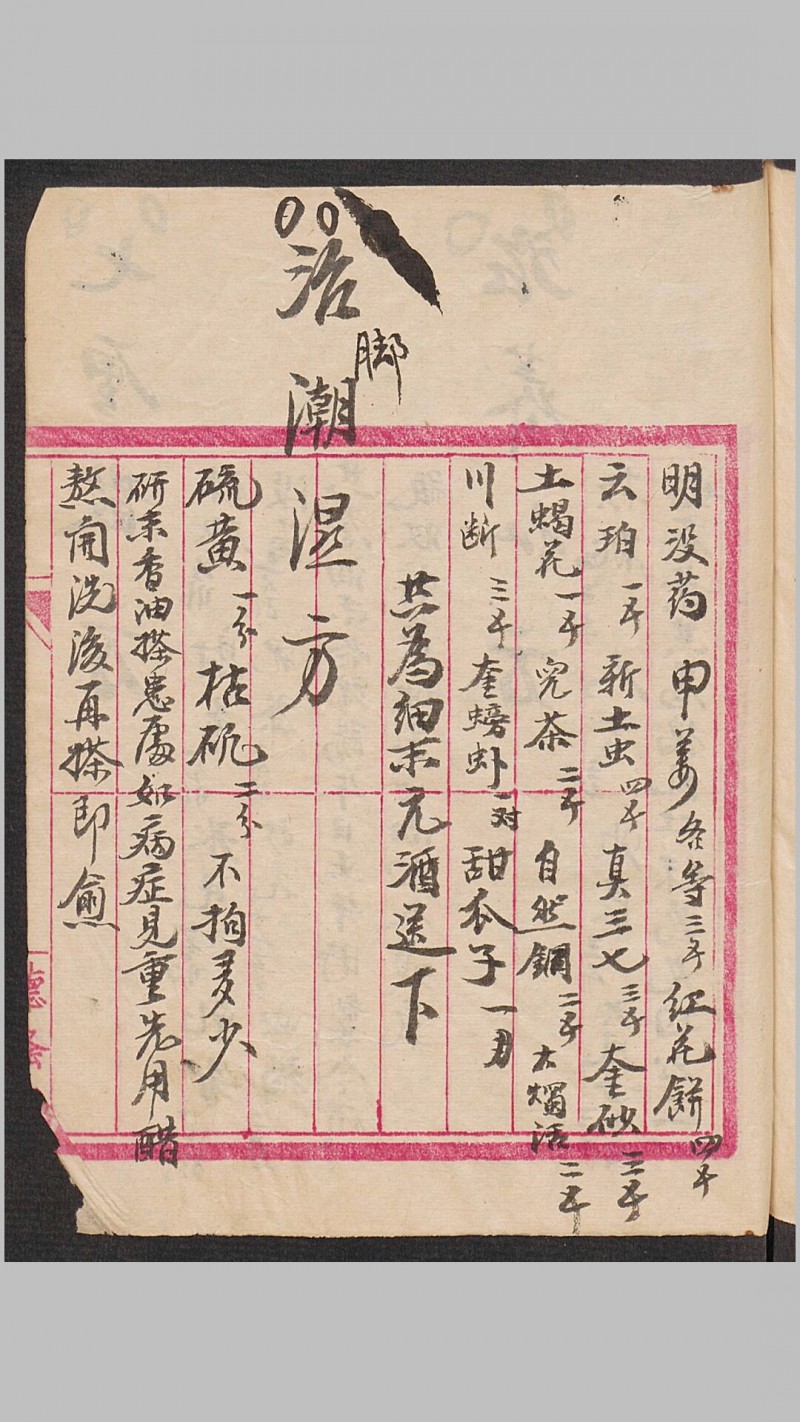 明没药 申姜各等三子 红花餅四子
云珀一子 新土虫四子 真三七三子 奎砂三子
土蝎花一子 児茶二子 自然銅二子 大燭活二子
川断三子 奎螃虾一对 甜瓜子一刃
共為细末元酒送下
治脚潮湿方
硫黄一分 枯矾二分 不拘多少
研末香油搽患處如病症見重先用醋
熬開洗後再搽即愈